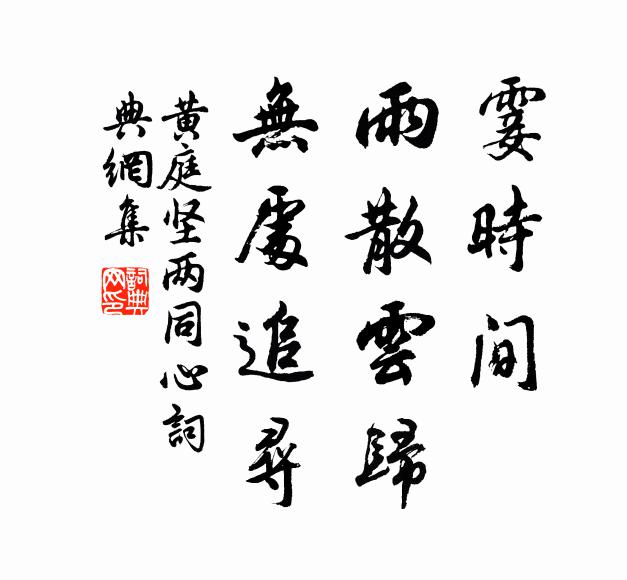 霎時間
雨散雲歸
無處追尋
黄庭坚两同心詞
典網集
詞典
网印